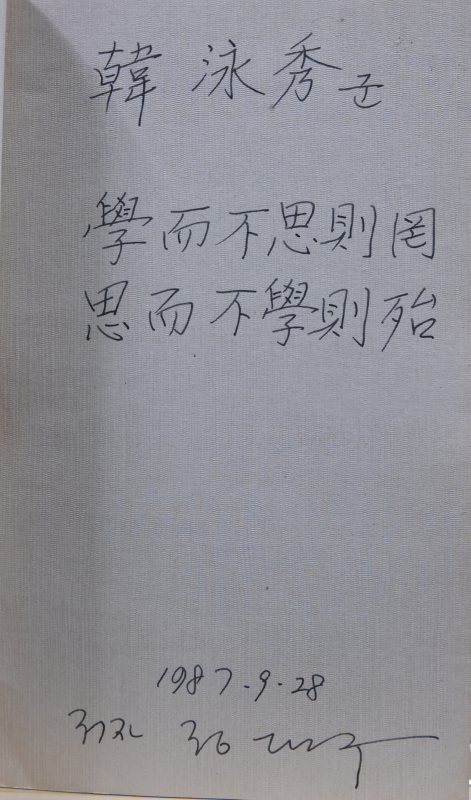 韓泳秀 군
學而不思則罔
思而不學則殆
1987.9.28
저자